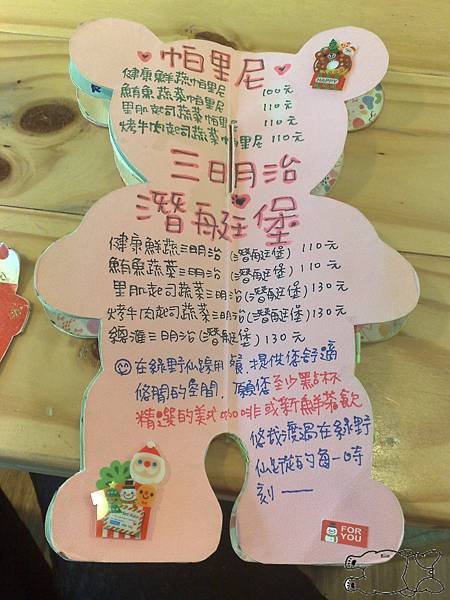 帕里尼
健康鮮蔬帕里尼 100元
鮪魚蔬菜帕里尼 110元
里肌起司蔬菜帕里尼 110元
烤牛肉起司蔬菜帕里尼 110元
三明治
潛艇堡
健康鮮蔬三明治(潛艇堡) 110元
鮪魚蔬菜三明治(潛艇堡) 110元
里肌起司蔬菜三明治(潛艇堡) 130元
烤牛肉起司蔬菜三明治(潛艇堡) 130元
總滙三明治(潛艇堡) 130元
在綠野仙蹤用餐,提供您舒適
悠閒的空間,願您至少點杯
精選的美式咖啡或新鮮茶飲
悠哉渡過在綠野
仙蹤的每一時
刻——
HAPPY
FOR
YOU